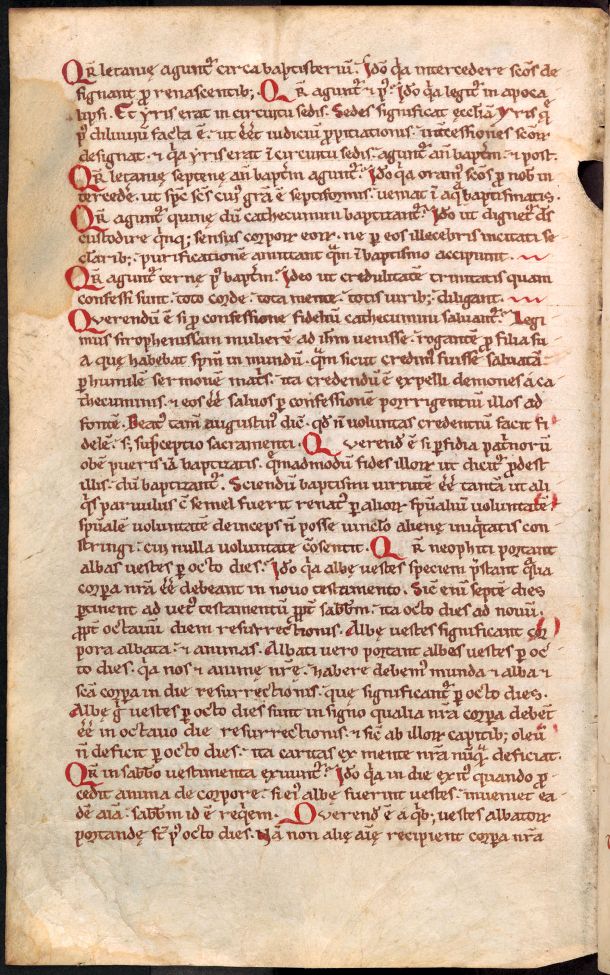 Qr̄ letanię agunt᷑ circa baptisteriū. Ido q̄a intercedere scōs de
signant p renascentib; Qr̄ agunt᷑ & p᷒. Ido q̄a legit᷑ in apoca
lipsi. Et yris erat in circuitu sedis. Sedes significat ęcclīā. Yris q̨
p᷒ diluuiū facta ē. ut eēt iudiciū ppitiationis. intcessiones scoꝝ
designat. & q̄a yris erat ī circuitu sedis. agunt᷑ an̄ baptm̄. & post.
Qr̄ letanię septenę an̄ baptm̄ agunt᷑. Ido q̄a oram᷒ scōs p nob̄ in
tercedē. ut spc̄ scs̄ cui᷒ grā ē septiformis. ueniat ī aq̄ baptismatis.
Qr̄ agunt᷑ quinę dū cathecumini baptizant᷑. Ido ut dignet᷑ ds̄
custodire q̄nq; sensus corpoꝝ eoꝝ. ne p eos illecebris incitati se
clarib; purificationē amittant quā in baptismo accipiunt.
Qr̄ agunt᷑ ternę p᷒ baptm̄. Ideo ut credulitatē trinitatis quam
confessi sunt. toto corde. tota mente. totis uirib; diligant.
Querendū ē si p confessione fidelū cathecumini saluant᷑. Legi
mus sirophenissam mulierē ad ihm̄ uenisse. rogantē p filia su
a quę habebat spm̄ in mundū. quā sicut credim᷒ fuisse saluatā
p humilē sermonē matr̄s. ita credendū ē expelli demones a ca
thecuminis. & eos eē saluos p confessionē porrigentiū illos ad
fontē. Beat᷒ tam̄ augustin᷒ dic̄. qd̄ n̄ uoluntas credentiū facit fi
delē. s; susceptio sacramenti. Querend᷒ ē si pfidia patrinorū
obē pueris iā baptizatis. quēadmodū fides illoꝝ ut dicit᷑ pdest
illis. dū baptizant᷑. Sciendū baptismi uirtutē eē tantā ut ali
q̄s paruulus c̄ semel fuerit renat᷒ p alioꝝ spūaliū uoluntatē
spūalē uoluntatē deinceps n̄ posse uinclo alienę iniq̄tatis con
stringi. cui nulla uoluntate c̄sentit. Qr̄ neophiti portant
albas uestes p octo dies. Ido q̄a albę uestes speciem p̄stant qualia
corpora nrā eē debeant in nouo testamento. Sic̄ eni septē dies
ptinent ad uet᷒ testamentū ppt̄ sabbm̄. ita octo dies ad nouū
ppt̄ octauū diem resurrectionis. Albę uestes significant cor
pora albata. & animas. Albati uero portant albas uestes p oc
to dies. q̄a nos & animę nrē. habere debem᷒ munda & alba &
scā corpora in die resurrectionis. quę significant᷑ p octo dies.
Albę g̊ uestes p octo dies sunt in signo qualia nrā corpora debēt
eē in octauo die resurrectionis. & sic̄ ab illoꝝ capitib; oleū
n̄ deficit p octo dies. ita caritas ex mente nrā nūq̄ deficiat.
Qr̄ in sabbo uestimenta exuunt᷑. Ido q̄a in die exit᷒ quando p
cedit anima de corpore. si ei᷒ albę fuerint uestes. inueniet ea
dē aīā. sabbm̄ id ē req̄em. Querend᷒ ē a q̄b; uestes albatoꝝ
portandę st̄ p᷒ octo dies. Nā non alię aīę recipient corpora nrā